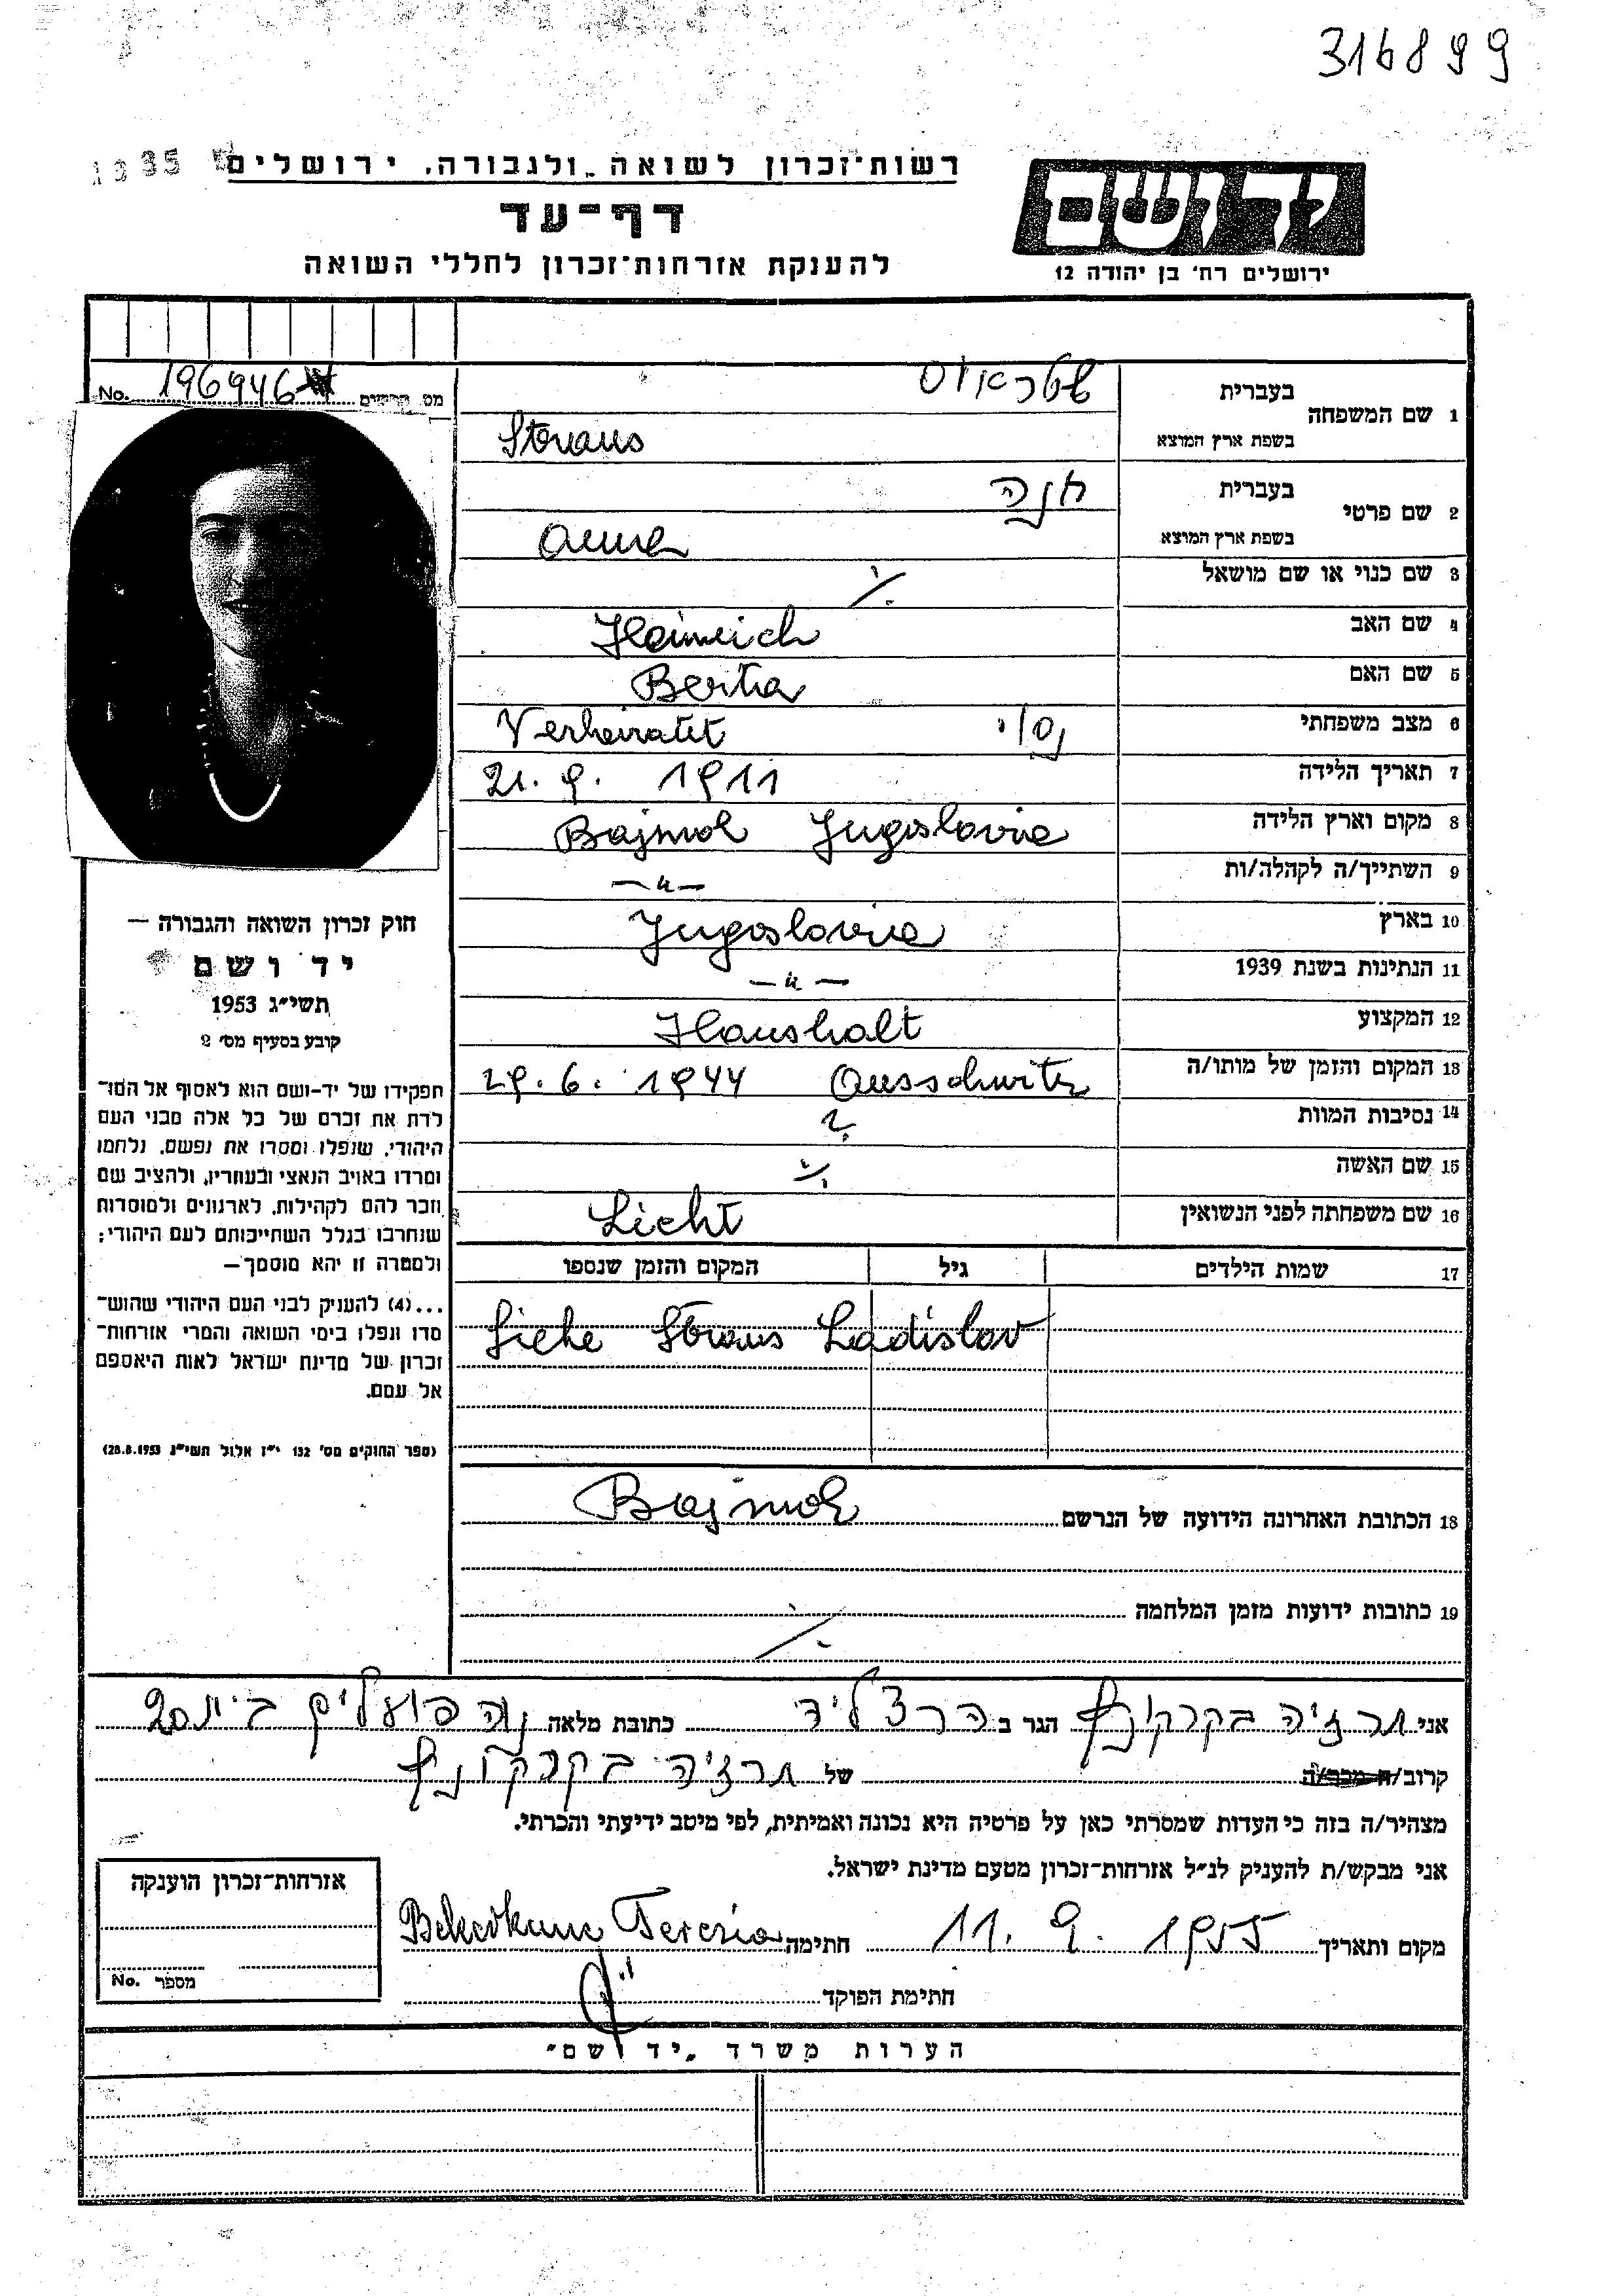 316899
רשות־זכרון לשואה ולגבורה, ירושלים
דף־עד
להענקת אזרחות־זכרון לחללי השואה
יד ושם
ירושלים רח' בן יהודה 12
No. 196946
1 שם המשפחה
בעברית שטראוס
בשפת ארץ המוצא Straus
2 שם פרטי
בעברית חנה
בשפת ארץ המוצא Anna
3 שם כנוי או שם מושאל
4 שם האב Heinrich
5 שם האם Berta
6 מצב משפחתי נסוי Verheiratet
7 תאריך הלידה 21. 9. 1911
8 מקום וארץ הלידה Bajmok Jugoslavia
9 השתייך/ה לקהלה/ות —"—
10 בארץ Jugoslavia
11 הנתינות בשנת 1939 —"—
12 המקצוע Haushalt
13 המקום והזמן של מותו/ה 29. 6. 1944 Ausschwitz
14 נסיבות המוות ?
15 שם האשה
16 שם משפחתה לפני הנשואין Licht
17 שמות הילדים גיל המקום והזמן שנספו
Siehe Straus Ladislav
18 הכתובת האחרונה הידועה של הנרשם Bajmok
19 כתובות ידועות מזמן המלחמה
חוק זכרון השואה והגבורה —
יד ושם
תשי"ג 1953
קובע בסעיף מס' 2
תפקידו של יד-ושם הוא לאסוף אל המו־
לדת את זכרם של כל אלה מבני העם
היהודי, שנפלו ומסרו את נפשם, נלחמו
ומרדו באויב הנאצי ובעוזריו, ולהציב שם
וזכר להם לקהילות, לארגונים ולמוסדות
שנחרבו בגלל השתייכותם לעם היהודי;
ולמטרה זו יהא מוסמך—
...(4) להעניק לבני העם היהודי שהוש־
מדו ונפלו בימי השואה והמרי אזרחות־
זכרון של מדינת ישראל לאות היאספם
אל עמם.
(ספר החוקים מס' 132 י"ז אלול תשי"ג 28.8.1953)
אני תרזיה הגר ב הרצליה כתובת מלאה נוה פועלים בית 20
קרוב/ה של תרזיה
מצהיר/ה בזה כי העדות שמסרתי כאן על פרטיה היא נכונה ואמיתית, לפי מיטב ידיעתי והכרתי.
אני מבקש/ת להעניק לנ"ל אזרחות־זכרון מטעם מדינת ישראל.
מקום ותאריך 11. 9. 1955 חתימה Terezia
חתימת הפוקד
אזרחות־זכרון הוענקה
מספר No.
הערות משרד "יד ושם"